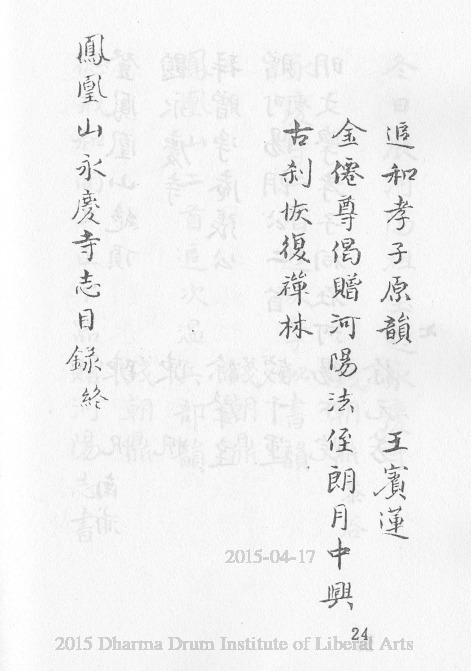 追和孝子原韻　王賓蓮
金僊尊偈贈河陽法侄朗月中興
古刹恢復禅林
鳳凰山永慶寺志目録終
2015-04-17
24
2015 Dharma Drum Institute of Liberal Arts